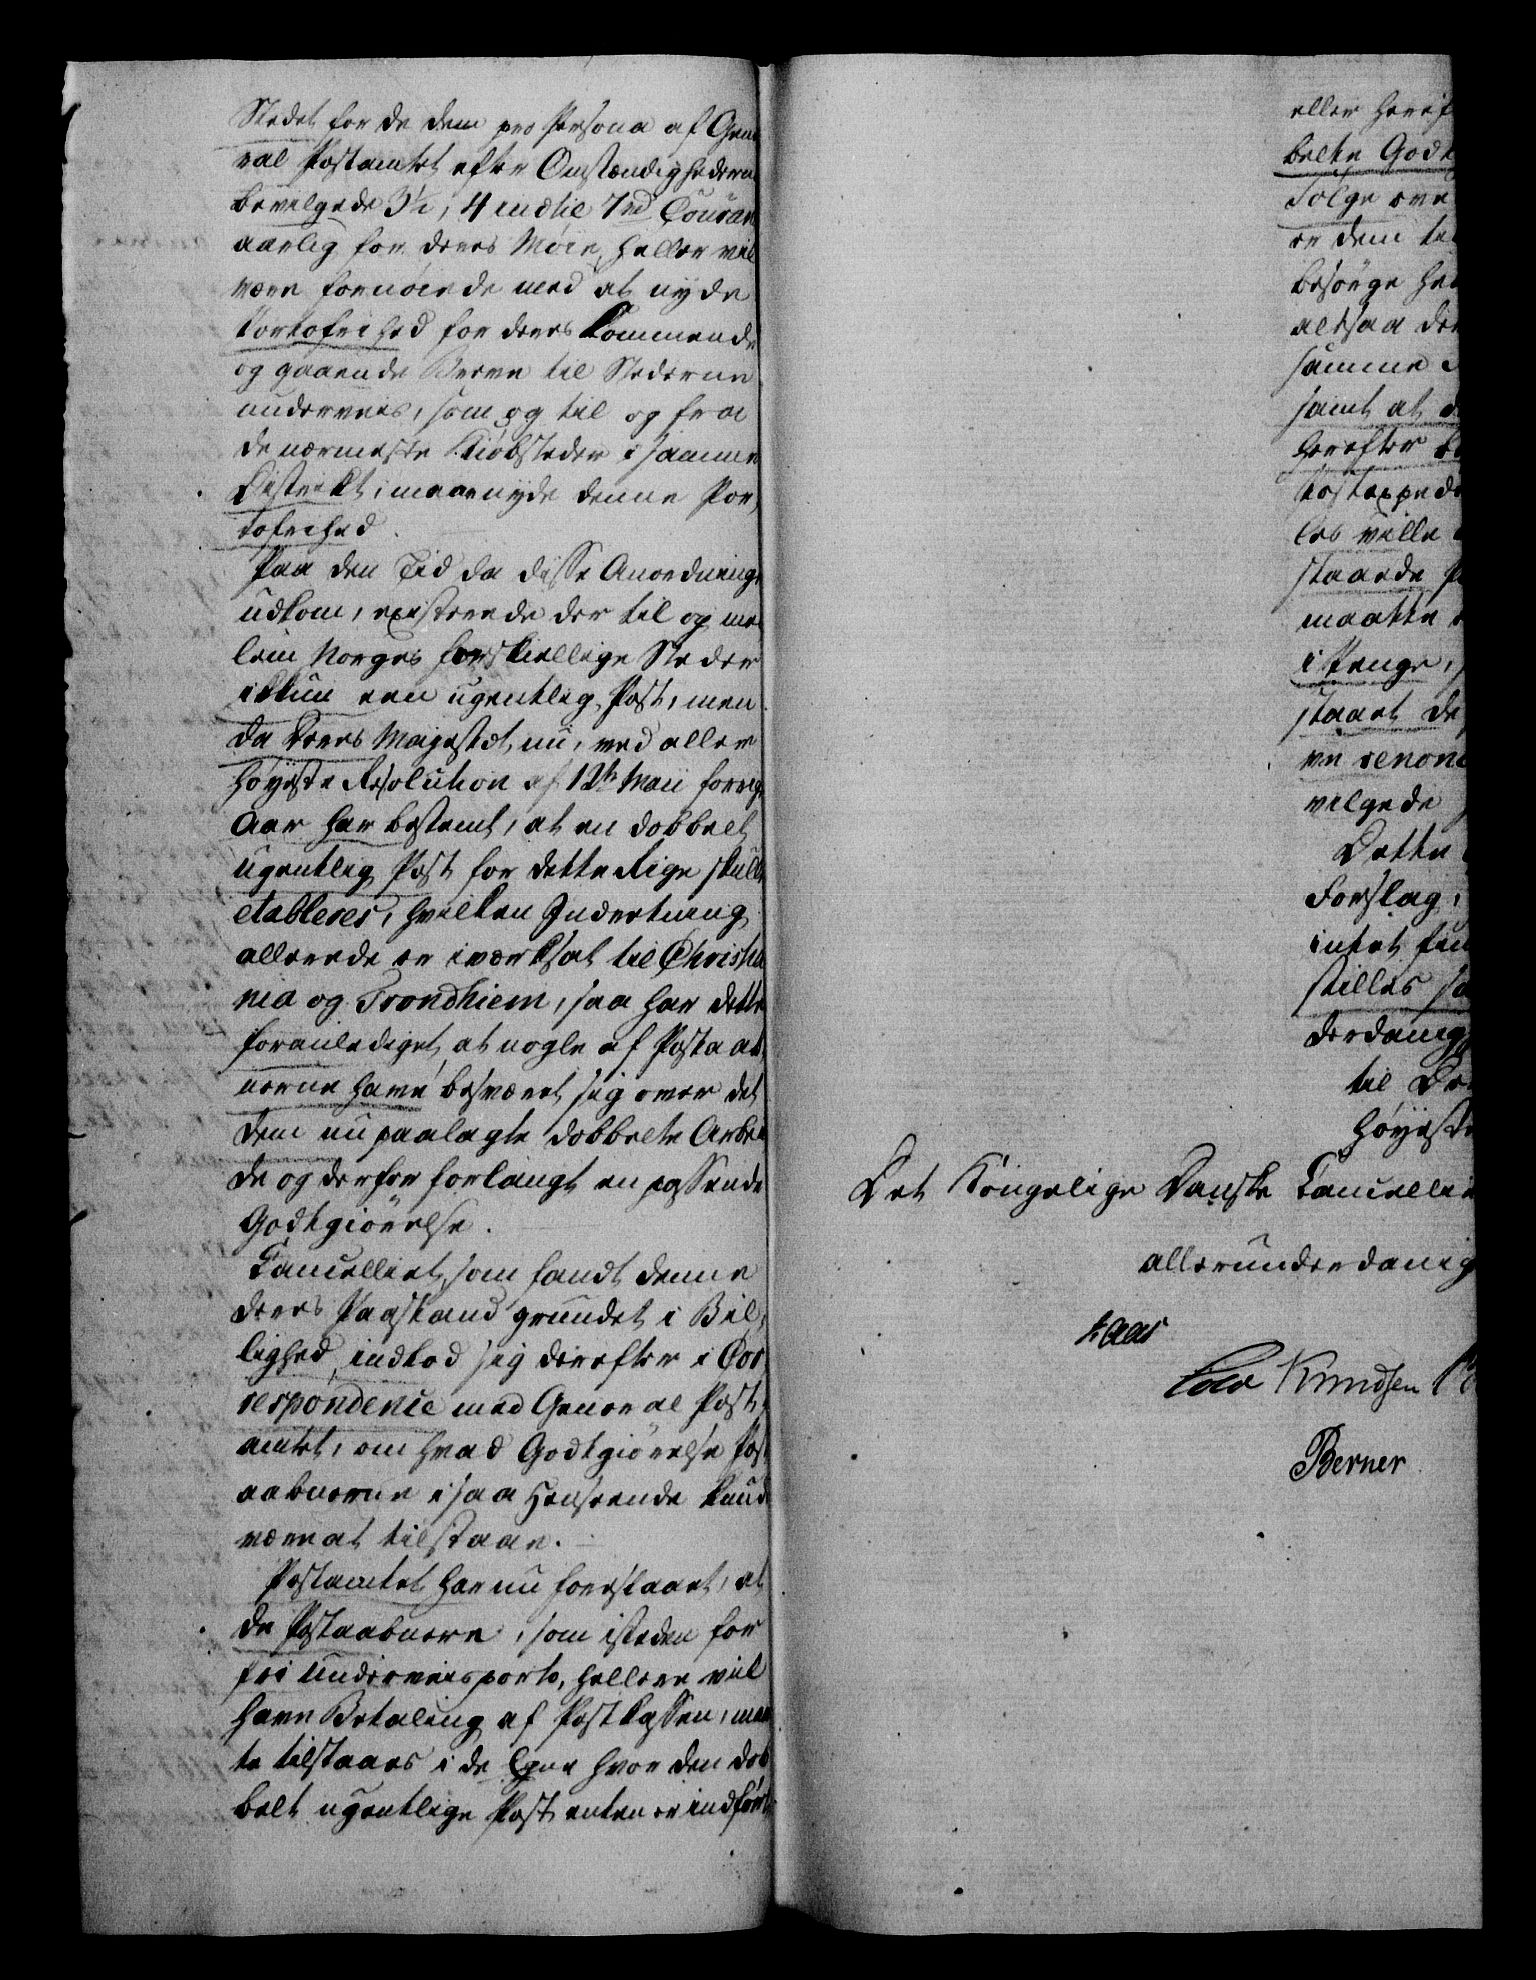 Stedet for de dem pro Persona af Gene
ral Postamtet efter Omstændighederne
bevilgede 3½, 4 indtil 7 rd Couran
aarlig for deres Møie, heller vil
være fornøiede med at nyde
Portofrihed for deres kommende
og gaaende Breve til Stederne
underveis, som og til og fra
de nærmeste Kiøbsteder i samme
District, maae nyde denne Por
tofrihed.
Paa den Tid da disse Anordninge
udkom, existerede der til og mel
lem Norges forskiellige Steder
ikkun een ugentlig Post, men
da Deres Majestæt nu, ved aller
høyeste Resolution af 12te Maii forrige
Aar har bestemt, at en dobbelt
ugentlig Post for dette Rige skulle
etableres, hvilken Indretning
allerede er iværksat til Christia
nia og Trondhiem, saa har dette
foranlediget, at nogle af Postaab
nerne have besværet sig over det
dem nu paalagte dobbelte Arbei
de og derfor forlangt en passende
Godtgiørelse.
Cancelliet, som fandt denne
deres Paastand grundet i Bil
lighed, indlod sig derefter i Cor
respondence med General Post
amtet, om hvad Godtgiørelse Post
aabnerne i saa Henseende kunde
være at tilstaae.
Postamtet har nu foreslaaet, at
de Postaabnere, som isteden for
fri Underveisporto, hellere vil
have Betaling af Postkassen, maae
te tilstaaes i de Egne hvor den dob
belt ugentlige Post enten er indført
eller heref
belte Godt
Følge
er dem til
besørge
altsaa
samme
samt at d
herefter
Postexped
les ville
staaede P
maatte
i Penge,
staaet de
ve renon
vilgede
Dette
Forslag,
intet
stilles
derdanig
til De
høyeste
Det Kongelige Danske Cancellie
allerunderdanig
Kaas
Cold Knudsen
Berner